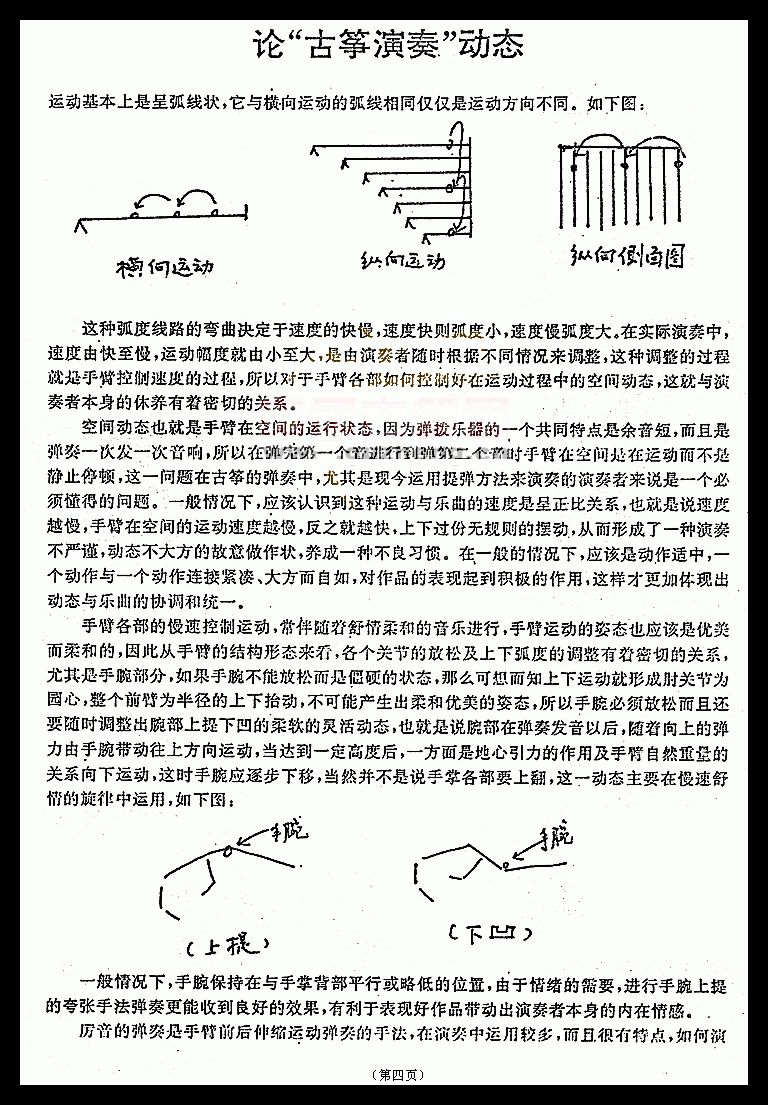 论“古筝演奏”动态
运动基本上是呈弧线状，它与横向运动的弧线相同仅仅是运动方向不同。如下图：
横向运动
纵向运动
纵向侧面图
这种弧度线路的弯曲决定于速度的快慢，速度快则弧度小，速度慢弧度大。在实际演奏中，
速度由快至慢，运动幅度就由小至大，是由演奏者随时根据不同情况来调整，这种调整的过程
就是手臂控制速度的过程，所以对于手臂各部如何控制好在运动过程中的空间动态，这就与演
奏者本身的休养有着密切的关系。
空间动态也就是手臂在空间的运行状态，因为弹拨乐器的一个共同特点是余音短，而且是
弹奏一次发一次音响，所以在弹完第一个音进行到弹第二个音时手臂在空间是在运动而不是
静止停顿，这一问题在古筝的弹奏中，尤其是现今运用提弹方法来演奏的演奏者来说是一个必
须懂得的问题。一般情况下，应该认识到这种运动与乐曲的速度是呈正比关系，也就是说速度
越慢，手臂在空间的运动速度越慢，反之就越快，上下过份无规则的摆动，从而形成了一种演奏
不严谨，动态不大方的故意做作状，养成一种不良习惯。在一般的情况下，应该是动作适中，一
个动作与一个动作连接紧凑、大方而自如，对作品的表现起到积极的作用，这样才更加体现出
动态与乐曲的协调和统一。
手臂各部的慢速控制运动，常伴随着舒情柔和的音乐进行，手臂运动的姿态也应该是优美
而柔和的，因此从手臂的结构形态来看，各个关节的放松及上下弧度的调整有着密切的关系，
尤其是手腕部分，如果手腕不能放松而是僵硬的状态，那么可想而知上下运动就形成肘关节为
园心，整个前臂为半径的上下抬动，不可能产生出柔和优美的姿态，所以手腕必须放松而且还
要随时调整出腕部上提下凹的柔软的灵活动态，也就是说腕部在弹奏发音以后，随着向上的弹
力由手腕带动往上方向运动，当达到一定高度后，一方面是地心引力的作用及手臂自然重量的
关系向下运动，这时手腕应逐步下移，当然并不是说手掌各部要上翻，这一动态主要在慢速舒
情的旋律中运用，如下图：
手腕
手腕
（上提）
（下凹）
一般情况下，手腕保持在与手掌背部平行或略低的位置，由于情绪的需要，进行手腕上提
的夸张手法弹奏更能收到良好的效果，有利于表现好作品带动出演奏者本身的内在情感。
历音的弹奏是手臂前后伸缩运动弹奏的手法，在演奏中运用较多，而且很有特点，如何演
（第四页）